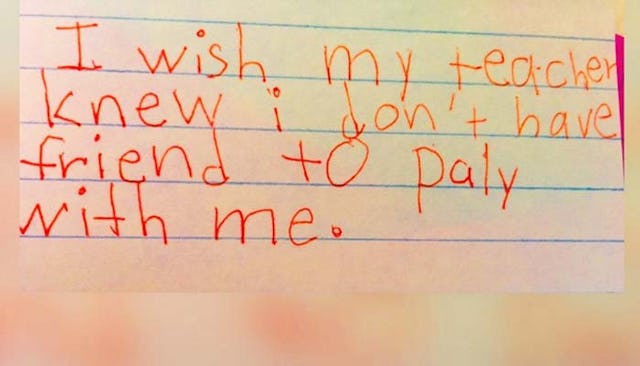 I wish my teacher
knew i don't have
friend to paly
with me.